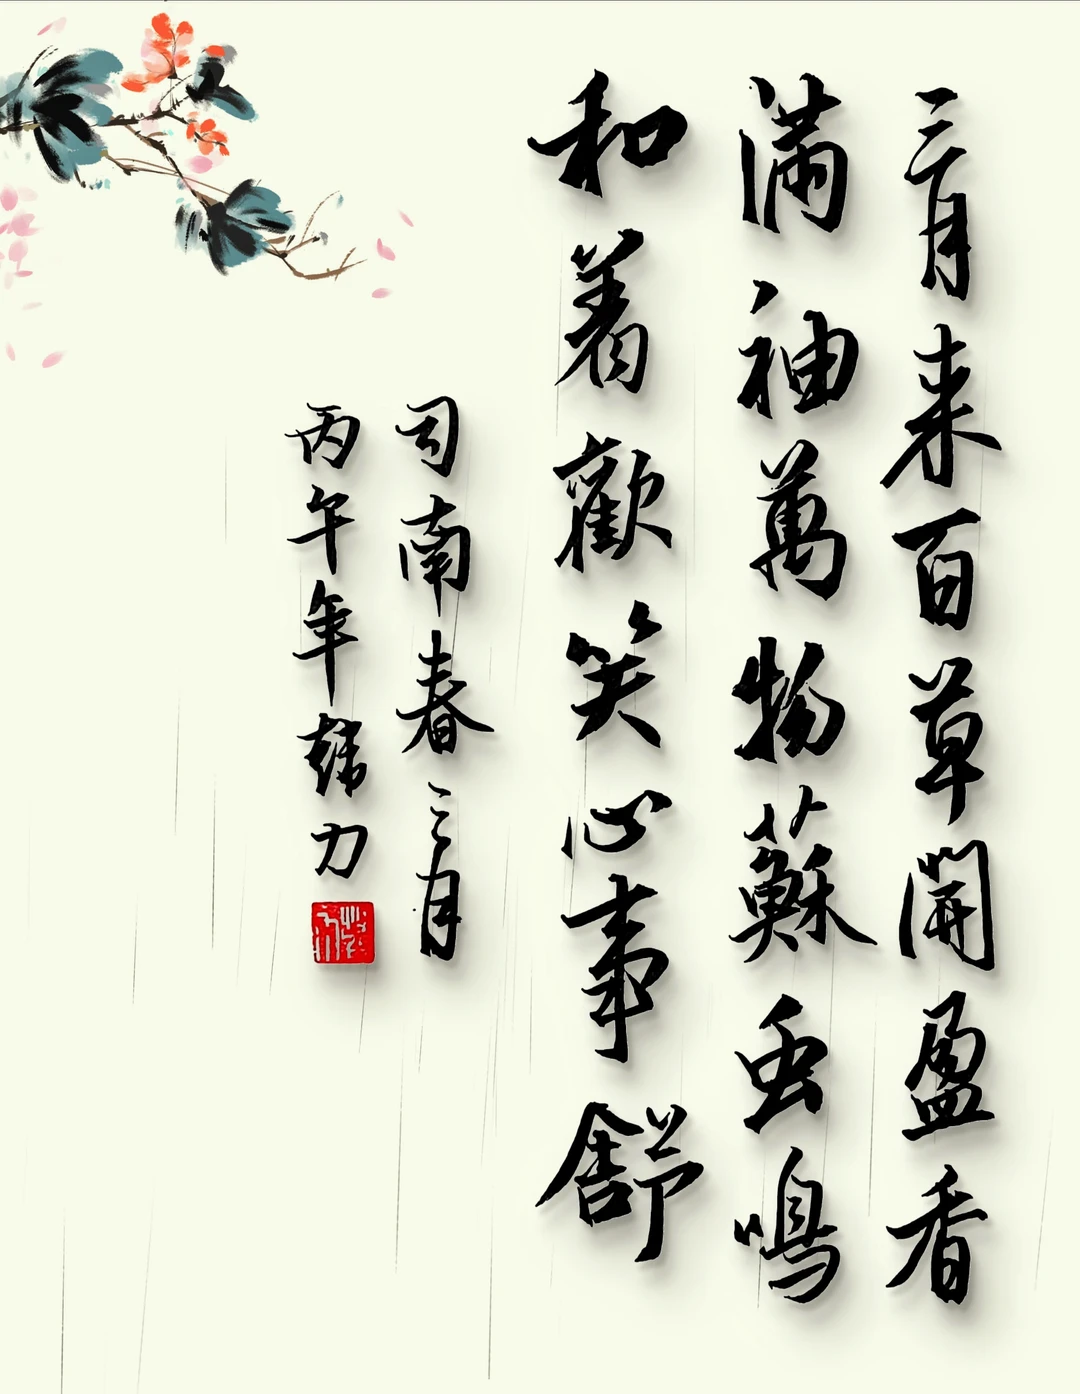 三月来百草開盈香
满袖萬物蘇虫鳴
和着歡笑心事舒
司南春三月
丙午年韩力